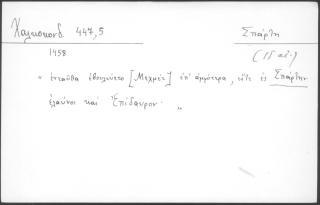 Χαλκοκονδ. 447,5
Σπάρτη
1458
(15 αἰ.)
" ἐνταῦθα ἐβουλεύετο [Μεχμέτ] ἐπ' ἀμφότερα, εἴτε ἐς Σπάρτην
ἐλαύνοι καὶ Ἐπίδαυρον. "